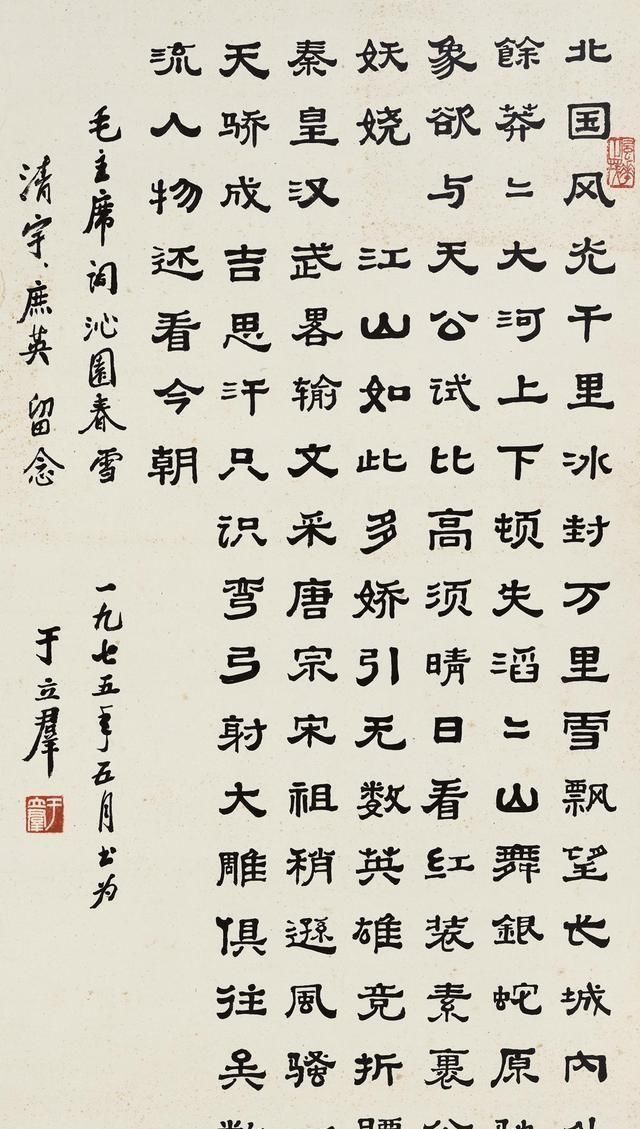 北国风光千里冰封万里雪飘望长城内外
餘莽〻大河上下顿失滔〻山舞銀蛇原驰
象欲与天公试比高须晴日看红装素裹分
妖娆江山如此多娇引无数英雄竞折腰
秦皇汉武畧输文采唐宗宋祖稍遜風骚一
天骄成吉思汗只识弯弓射大雕俱往矣数
流人物还看今朝
毛主席词沁園春雪 一九七五年五月书为
清宇、庶英留念 于立群
于立群